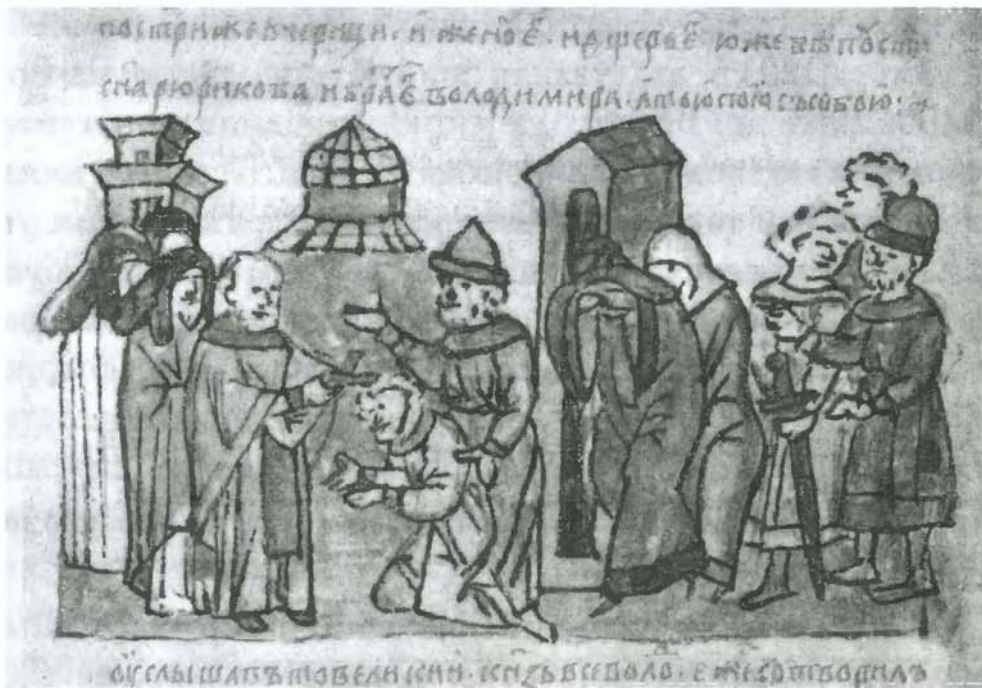 постриже в черньци. и женоу е. и дщерь е юже бѣ
сна рюрикова и брата е володимира. а тою поꙗ съ собою:
оуслышавъ то великии. кнзь всеволо. еже сотворилъ